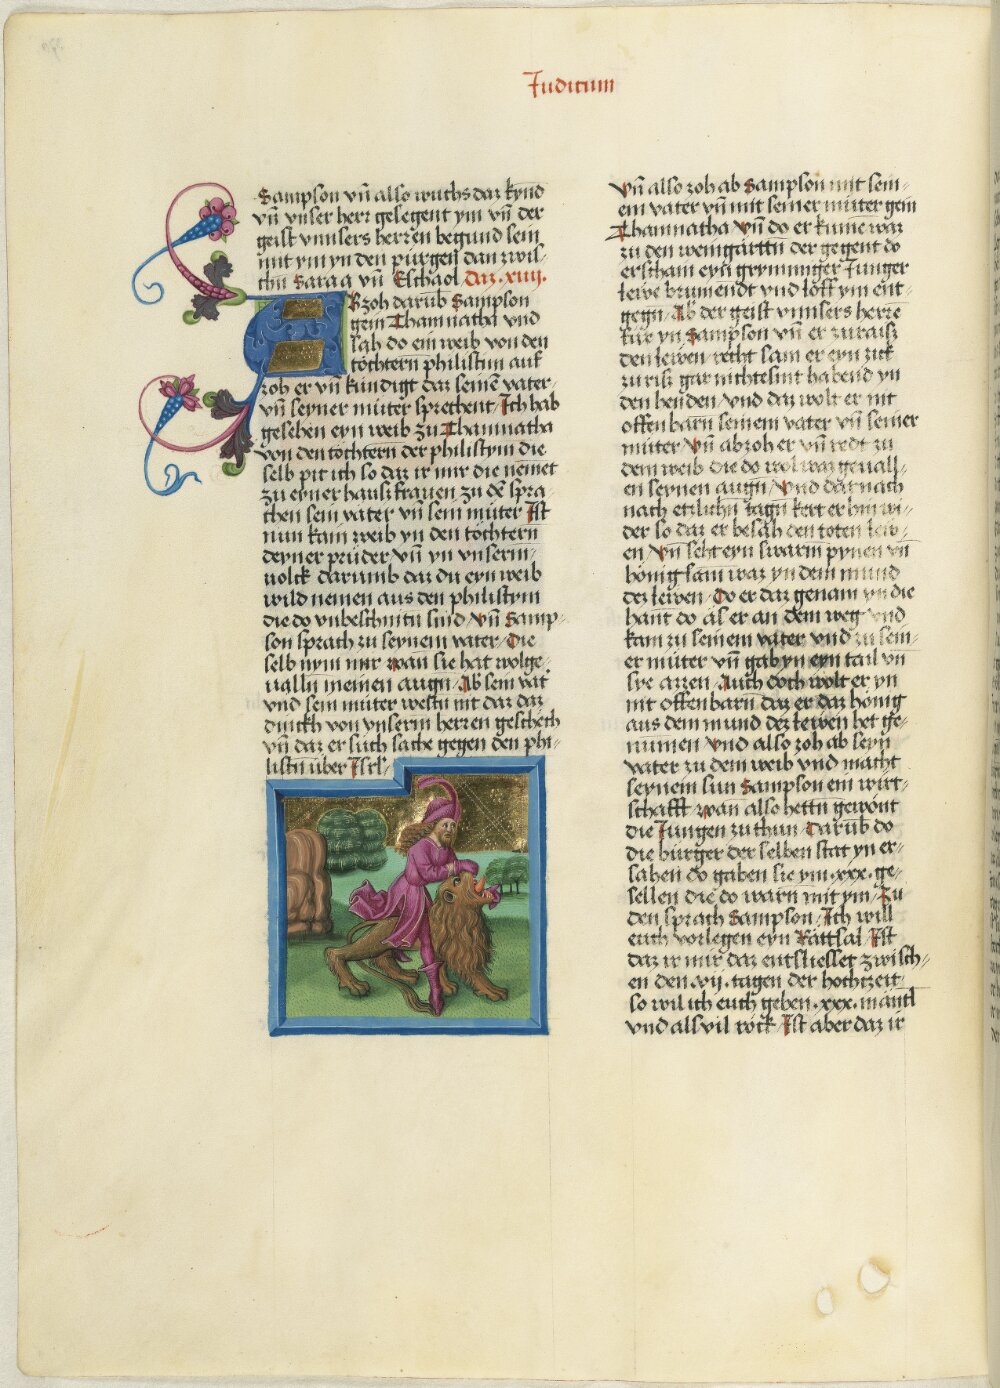 Judicum
Sampson vn̄ also wuchs daz kynd
vn̄ vnser herr gesegent ym vn̄ der
geist vnnsers herren begund sein
mit ym yn den purgen dan zwis-
chn Saraa vn̄ Esthaol Daz .xiiij.
ABzoh darub Sampson
gein Thamnatha vnd
sah do ein weib von den
töchtern philistim auf
zoh er vn̄ kundigt daz seinē vater
vn̄ seyner müter sprechent Ich hab
gesehen eyn weib zu Thamnatha
von den töchtern der philistym die
selb pit ich so daz ir mir die nemet
zu eyner hausfrauen zu dē spra-
chen sein vater vn̄ sein müter Ist
nun kain weib yn den töchtern
deyner prüder vn̄ yn vnserm
volck darumb daz du eyn weib
wild nemen aus den philistym
die do vnbeschnitn sind vn̄ Samp-
son sprach zu seynem vater Die
selb nym mir wan sie hat wolge-
ualln meinen augn Ab sein vat
vnd sein müter westn nit daz daz
dinckh von vnserm herren geschech
vn̄ daz er such sache gegen den phi-
listn über Isrl
Vn̄ also zoh ab Sampson mit sein-
em vater vn̄ mit seiner müter gein
Thamnatha vn̄ do er kume waz
zu den weingarttn der gegent do
erscham eyn grymmiger Junger
lewe brumendt vnd löff ym ent-
gegn Ab der geist vnnsers herre
für yn Sampson vn̄ er zuraisz
den lewen recht sam er eyn zick
zurisz gar nichtesint habend yn
den henden vnd daz wolt er nit
offenbarn seinem vater vn̄ seiner
müter vn̄ abzoh er vn̄ redt zu
dem weib die do wol waz geuall-
en seynen augn vnd darnach
nach etlichn tagn kert er hin wi-
der so daz er besäh den toten lew-
en vn̄ seht eyn swarm pynen vn̄
hönig sam waz yn dem mund
dez lewen Do er daz genam yn die
hant do als er an dem weg vnd
kam zu seinem vater vnd zu sein-
er müter vn̄ gab yn eyn tail vn̄
sye azzen Auch doch wolt er yn
nit offenbarn daz er daz hönig
aus dem mund dez lewen het ge-
numen vnd also zoh ab seyn
vater zu dem weib vnd macht
seynem sun Sampson ein wirt-
schafft wan also hettn gewont
die Jungen zuthun Darüb do
die bürger der selben stat yn er-
sahen do gaben sie ym .xxx. ge-
sellen die do warn mit ym Zu
den sprach Sampson Ich will
euch vorlegen eyn Rättsal Ist
daz ir mir daz entsliesset zwisch-
en den .vij. tagen der hochtzeit
so wil ich euch geben .xxx. mäntl
vnd alsvil röck Ist aber daz ir